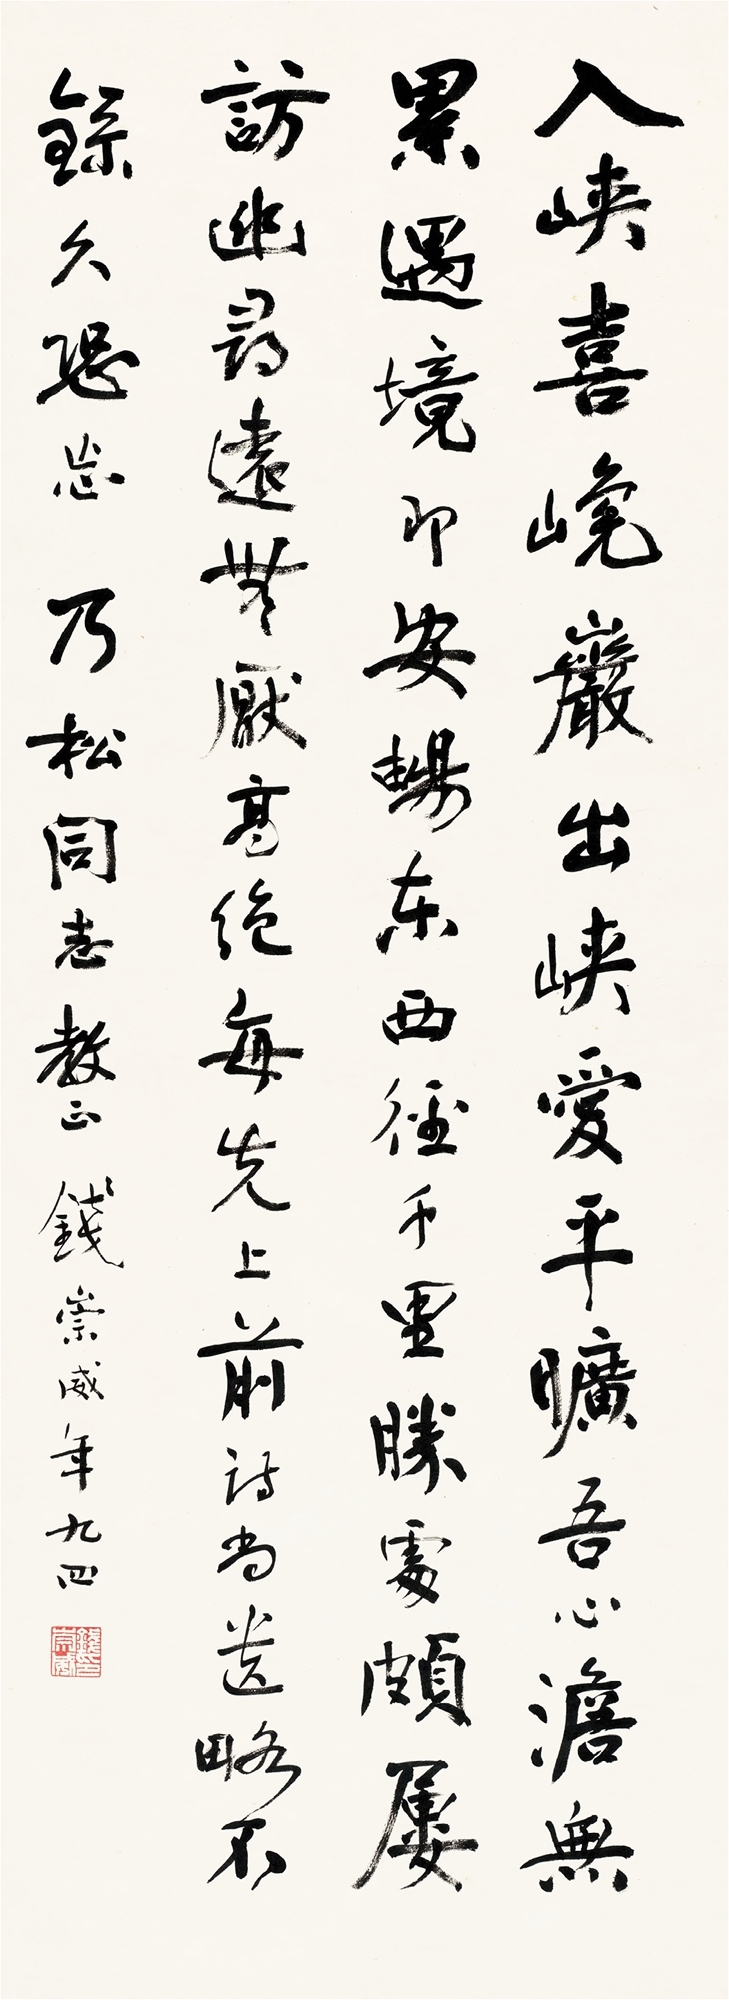 入峽喜巉巖出峽愛平曠吾心澹無
累遇境即安暢東西徑千里勝處頗屢
訪幽尋遠無厭高絕每先上前詩尚遺略不
錄久恐忘 乃松同志教正 錢崇威年九四
錢崇威印